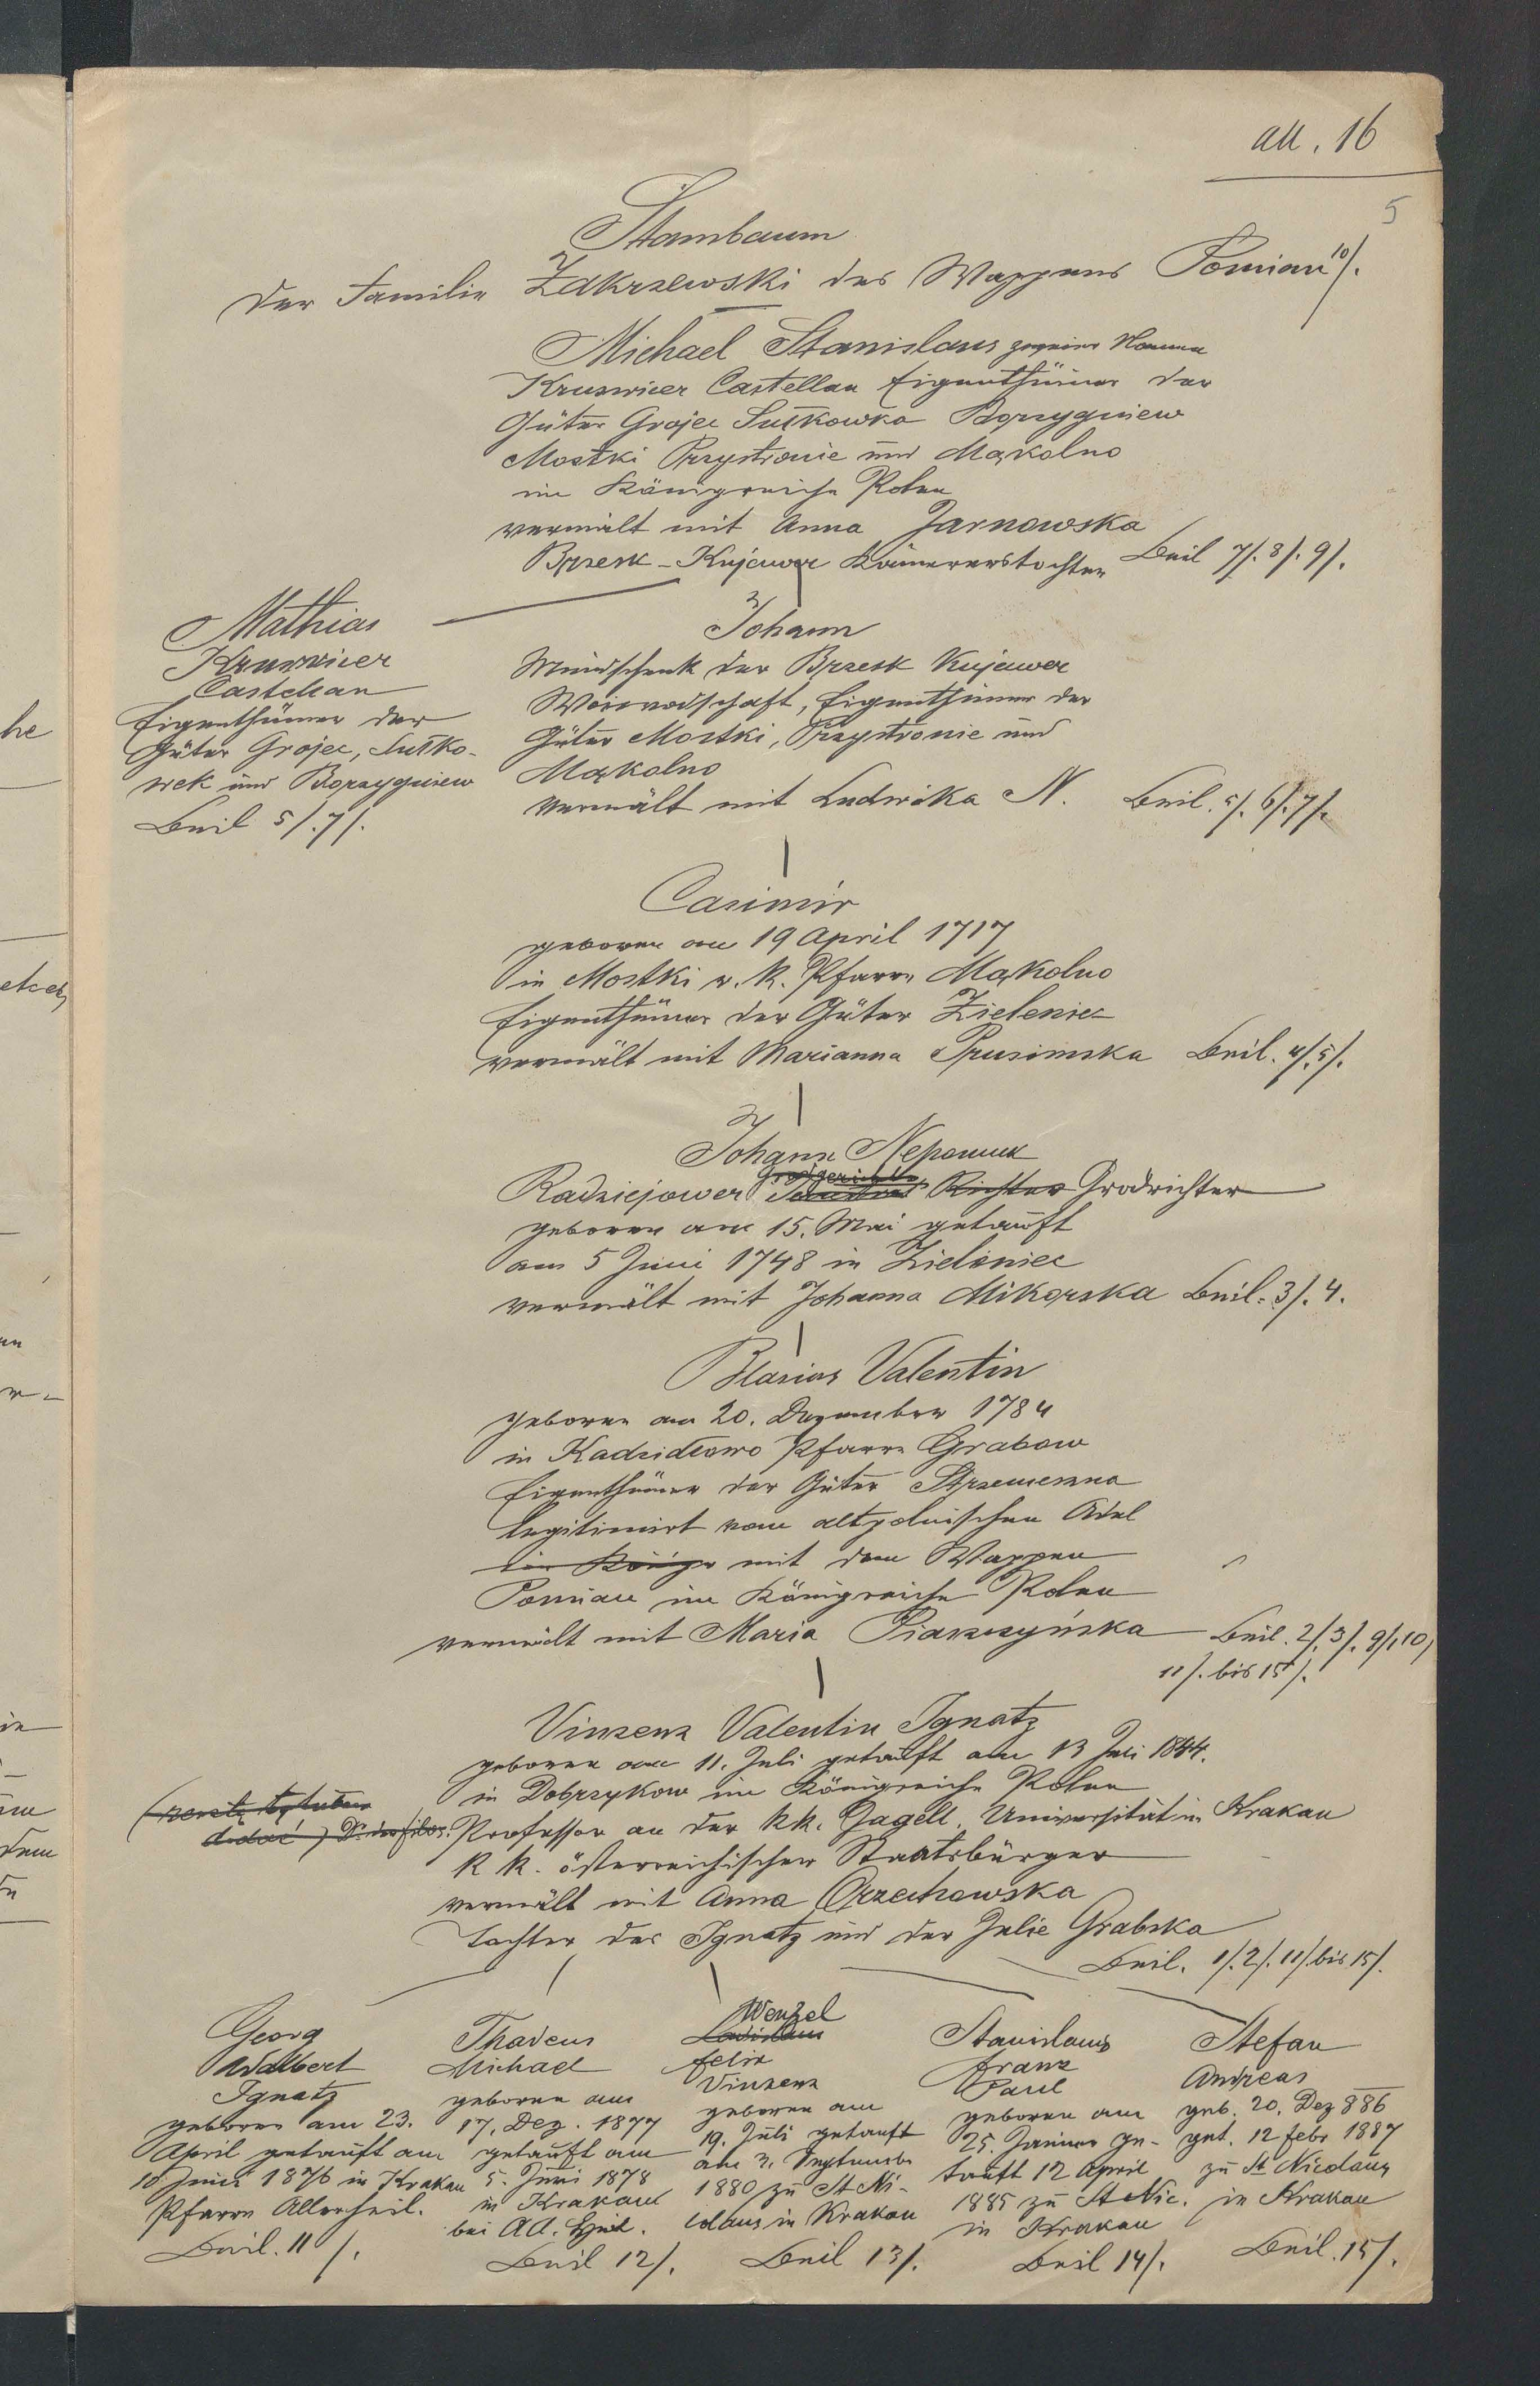 all. 16
5
Stambaum
der Familie Zakrzewski des Wappens Pomian 10/.
Michael Stanislaus zweier Namen
Kruswicer Castellan Eigenthümer der
Güter Grojec Sułkowka Boryzgniew
Mostki Przystronie und Mąkolno
im Königreiche Polen
vermält mit Anna Jarnowska
Brzesk-Kujawer Kämmererstochter Beil 7/. 8/. 9/.
Mathias
Kruswicer
Castellan
Eigenthümer der
Güter Grojec, Sułko-
wek und Boryzgniew
Beil 5/. 7/.
Johann
Mundschenk der Brzesk Kujawer
Woiwodschaft, Eigenthümer der
Güter Mostki, Przystronie und
Mąkolno
vermält mit Ludwika N. Beil. 5/. 6/. 7/.
Casimir
geboren am 19 April 1717
in Mostki r. k. Pfarre Mąkolno
Eigenthümer der Güter Zieleniec
vermält mit Marianna Prusimska Beil. 4/. 5/.
Johann Nepomuk
Grodgerichts
Radziejower Richter Grodrichter
geboren am 15. Mai getauft
am 5 Juni 1748 in Zieleniec
vermält mit Johanna Mikorska Beil. 3/. 4.
Blasius Valentin
geboren am 20. Dezember 1784
in Kadzidłowo Pfarre Grabow
Eigenthümer der Güter Strzemeszna
legitimirt vom altpolnischen Adel
im Königr mit dem Wappen
Pomian im Königreiche Polen
vermält mit Maria Piaszczyńska Beil. 2/. 3/. 9/. 10/
11/. bis 15/.
Vinzenz Valentin Ignatz
geboren am 11. Juli getauft am 13 Juli 1844.
in Dobrzykow im Königreiche Polen
(resztę tytułów
dodać) Dr. filos. Professor an der kk. Jagell. Universität in Krakau
k k. österreichischer Staatsbürger
vermält mit Anna Orzechowska
Tochter des Ignatz und der Julie Grabska
Beil. 1/. 2/. 11/. bis 15/.
Georg
Adalbert
Ignatz
geboren am 23.
April getauft am
10 Juni 1876 in Krakau
Pfarre Allerheil.
Beil. 11/.
Thadeus
Michael
geboren am
17. Dez. 1877
getauft am
5. Juni 1878
in Krakau
bei AA. Heil.
Beil 12/.
Wenzel
Ladislaus
Felix
Vinzenz
geboren am
19. Juli getauft
am 3. September
1880 zu St Ni-
colaus in Krakau
Beil 13/.
Stanislaus
Franz
Paul
geboren am
25. Jänner ge-
tauft 12 April
1885 zu St Nic.
in Krakau
Beil 14/.
Stefan
Andreas
geb. 20. Dez 886
get. 12 febr 1887
zu St Nicolaus
in Krakau
Beil. 15/.